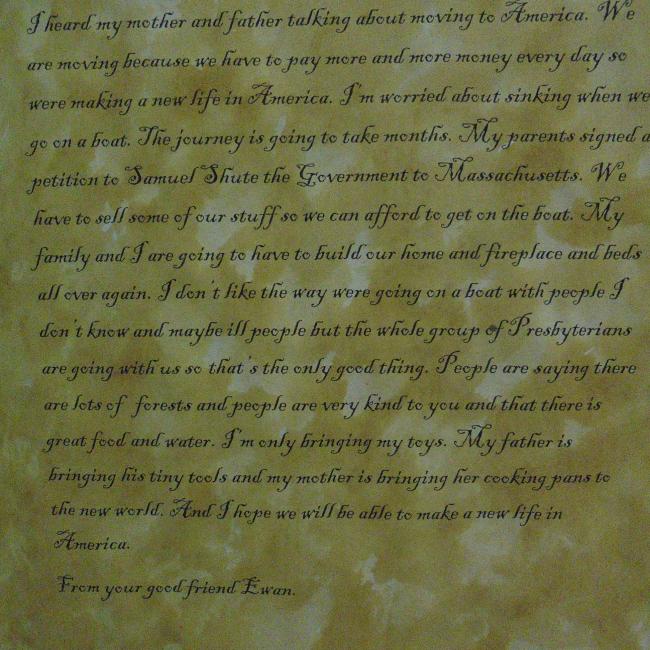 I heard my mother and father talking about moving to America. We
are moving because we have to pay more and more money every day so
were making a new life in America. I'm worried about sinking when we
go on a boat. The journey is going to take months. My parents signed a
petition to Samuel Shute the Government to Massachusetts. We
have to sell some of our stuff so we can afford to get on the boat. My
family and I are going to have to build our home and fireplace and beds
all over again. I don't like the way were going on a boat with people I
don't know and maybe ill people but the whole group of Presbyterians
are going with us so that's the only good thing. People are saying there
are lots of forests and people are very kind to you and that there is
great food and water. I'm only bringing my toys. My father is
bringing his tiny tools and my mother is bringing her cooking pans to
the new world. And I hope we will be able to make a new life in
America.
From your good friend Ewan.